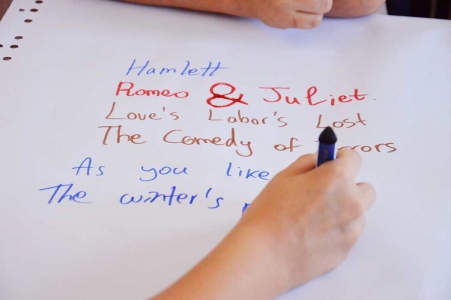 Hamlett
Romeo & Juliet.
Love's Labor's Lost
The Comedy of
As you like
The winter's